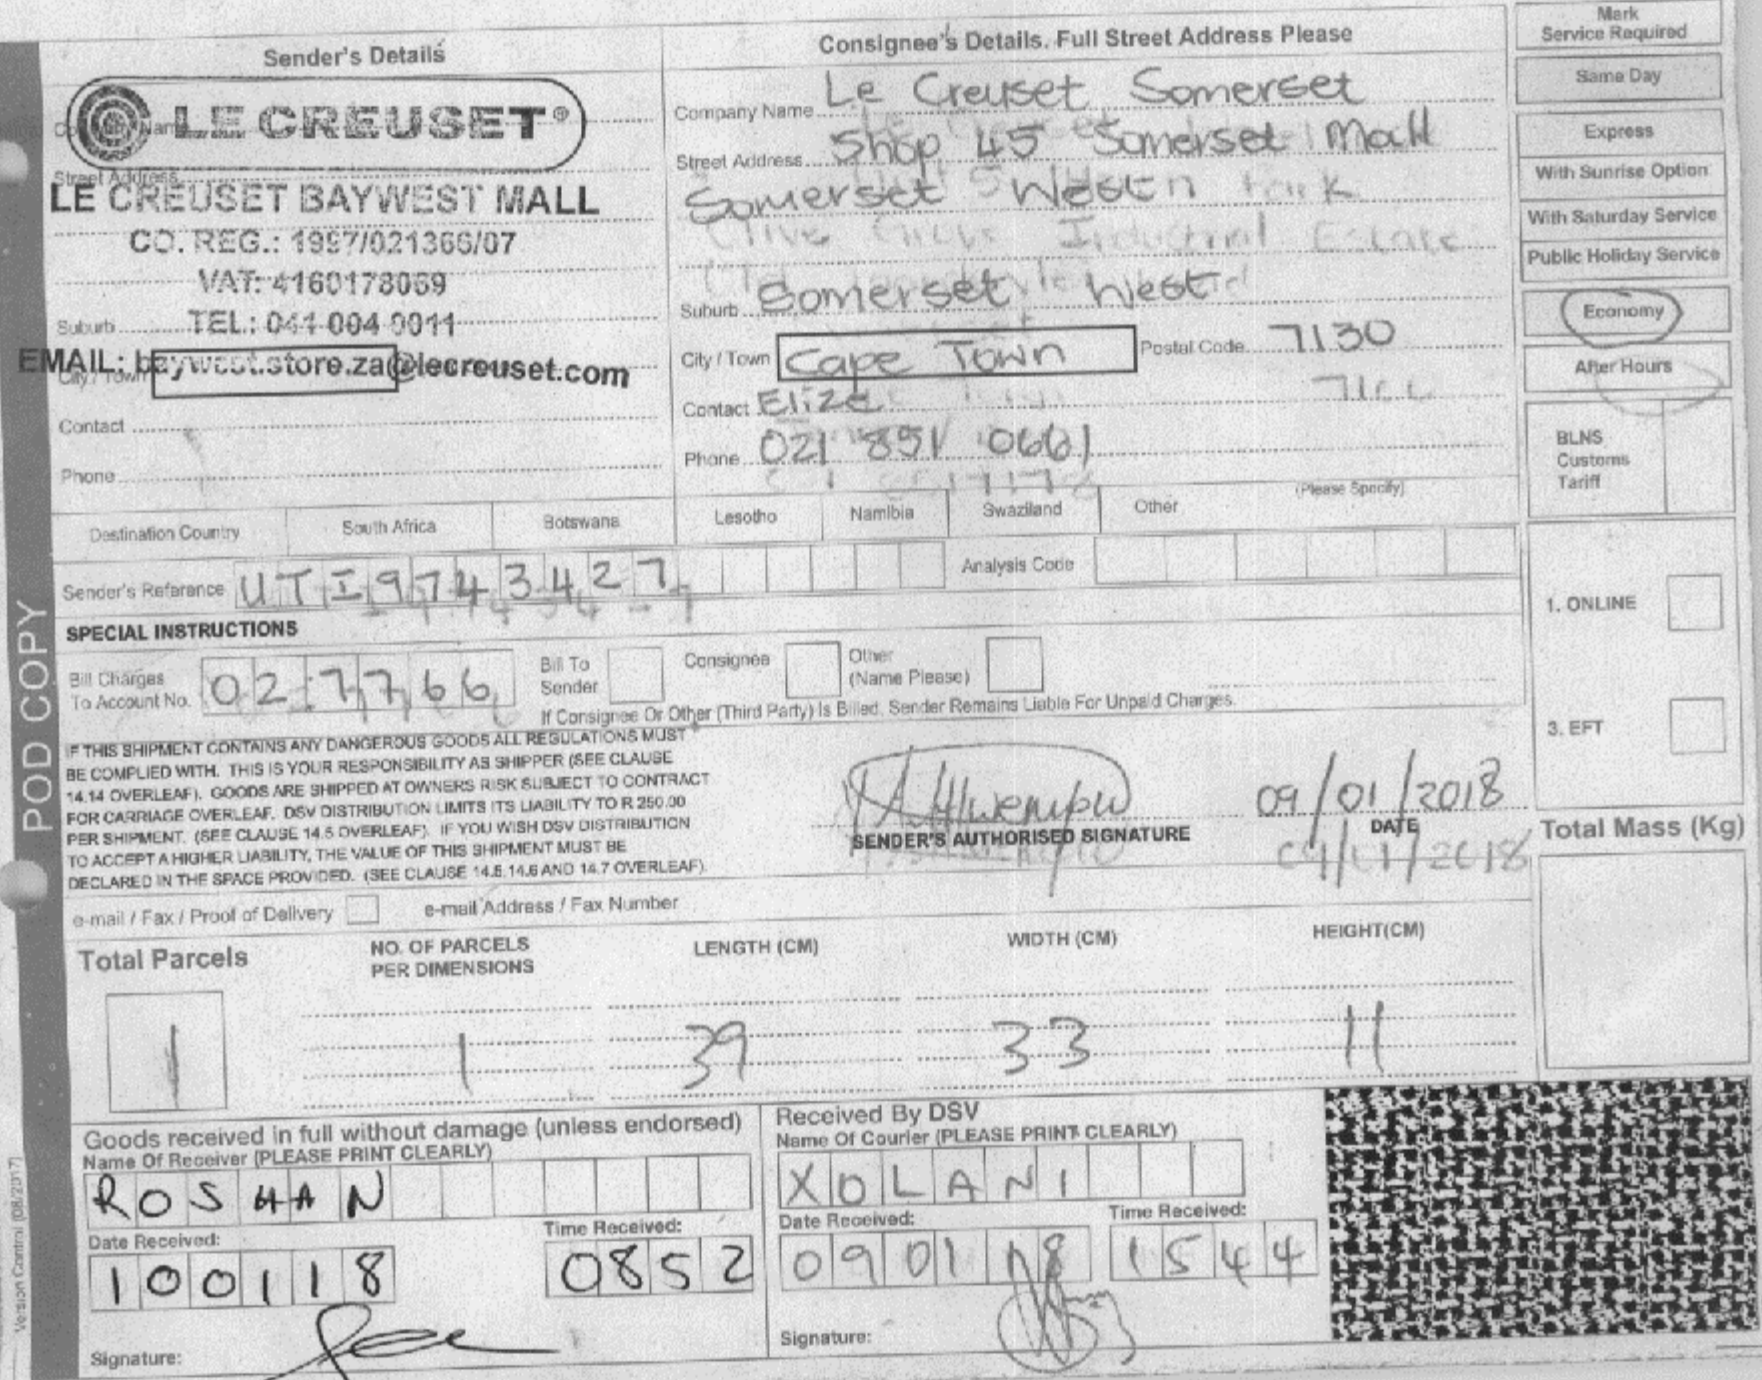 Sender's Details
LE CREUSET®
Company Name
Street Address
LE CREUSET BAYWEST MALL
CO. REG.: 1997/021366/07
VAT: 4160178069
Suburb TEL.: 041 004 0011
EMAIL: baywest.store.za@lecreuset.com
City / Town
Contact
Phone
Consignee's Details. Full Street Address Please
Company Name Le Creuset Somerset
Street Address Shop 45 Somerset Mall
Somerset West
Suburb Somerset West
City / Town Cape Town Postal Code 7130
Contact Elize
Phone 021 851 0661
Mark
Service Required
Same Day
Express
With Sunrise Option
With Saturday Service
Public Holiday Service
Economy
After Hours
BLNS
Customs
Tariff
Destination Country South Africa Botswana Lesotho Namibia Swaziland Other (Please Specify)
Sender's Reference UTI9743427 Analysis Code
1. ONLINE
3. EFT
SPECIAL INSTRUCTIONS
Bill Charges
To Account No. 027766
Bill To
Sender
Consignee
Other
(Name Please)
If Consignee Or Other (Third Party) Is Billed, Sender Remains Liable For Unpaid Charges.
IF THIS SHIPMENT CONTAINS ANY DANGEROUS GOODS ALL REGULATIONS MUST
BE COMPLIED WITH. THIS IS YOUR RESPONSIBILITY AS SHIPPER (SEE CLAUSE
14.14 OVERLEAF). GOODS ARE SHIPPED AT OWNERS RISK SUBJECT TO CONTRACT
FOR CARRIAGE OVERLEAF. DSV DISTRIBUTION LIMITS ITS LIABILITY TO R 250.00
PER SHIPMENT. (SEE CLAUSE 14.5 OVERLEAF). IF YOU WISH DSV DISTRIBUTION
TO ACCEPT A HIGHER LIABILITY, THE VALUE OF THIS SHIPMENT MUST BE
DECLARED IN THE SPACE PROVIDED. (SEE CLAUSE 14.5, 14.6 AND 14.7 OVERLEAF).
09/01/2018
SENDER'S AUTHORISED SIGNATURE DATE
09/01/2018
Total Mass (Kg)
e-mail / Fax / Proof of Delivery e-mail Address / Fax Number
Total Parcels
NO. OF PARCELS
PER DIMENSIONS
LENGTH (CM) WIDTH (CM) HEIGHT(CM)
1 1 39 33 11
Goods received in full without damage (unless endorsed)
Name Of Receiver (PLEASE PRINT CLEARLY)
ROSHAN
Date Received: Time Received:
100118 0852
Signature:
Received By DSV
Name Of Courier (PLEASE PRINT CLEARLY)
XOLANI
Date Received: Time Received:
090118 1544
Signature:
POD COPY
Version Control (08/2017)